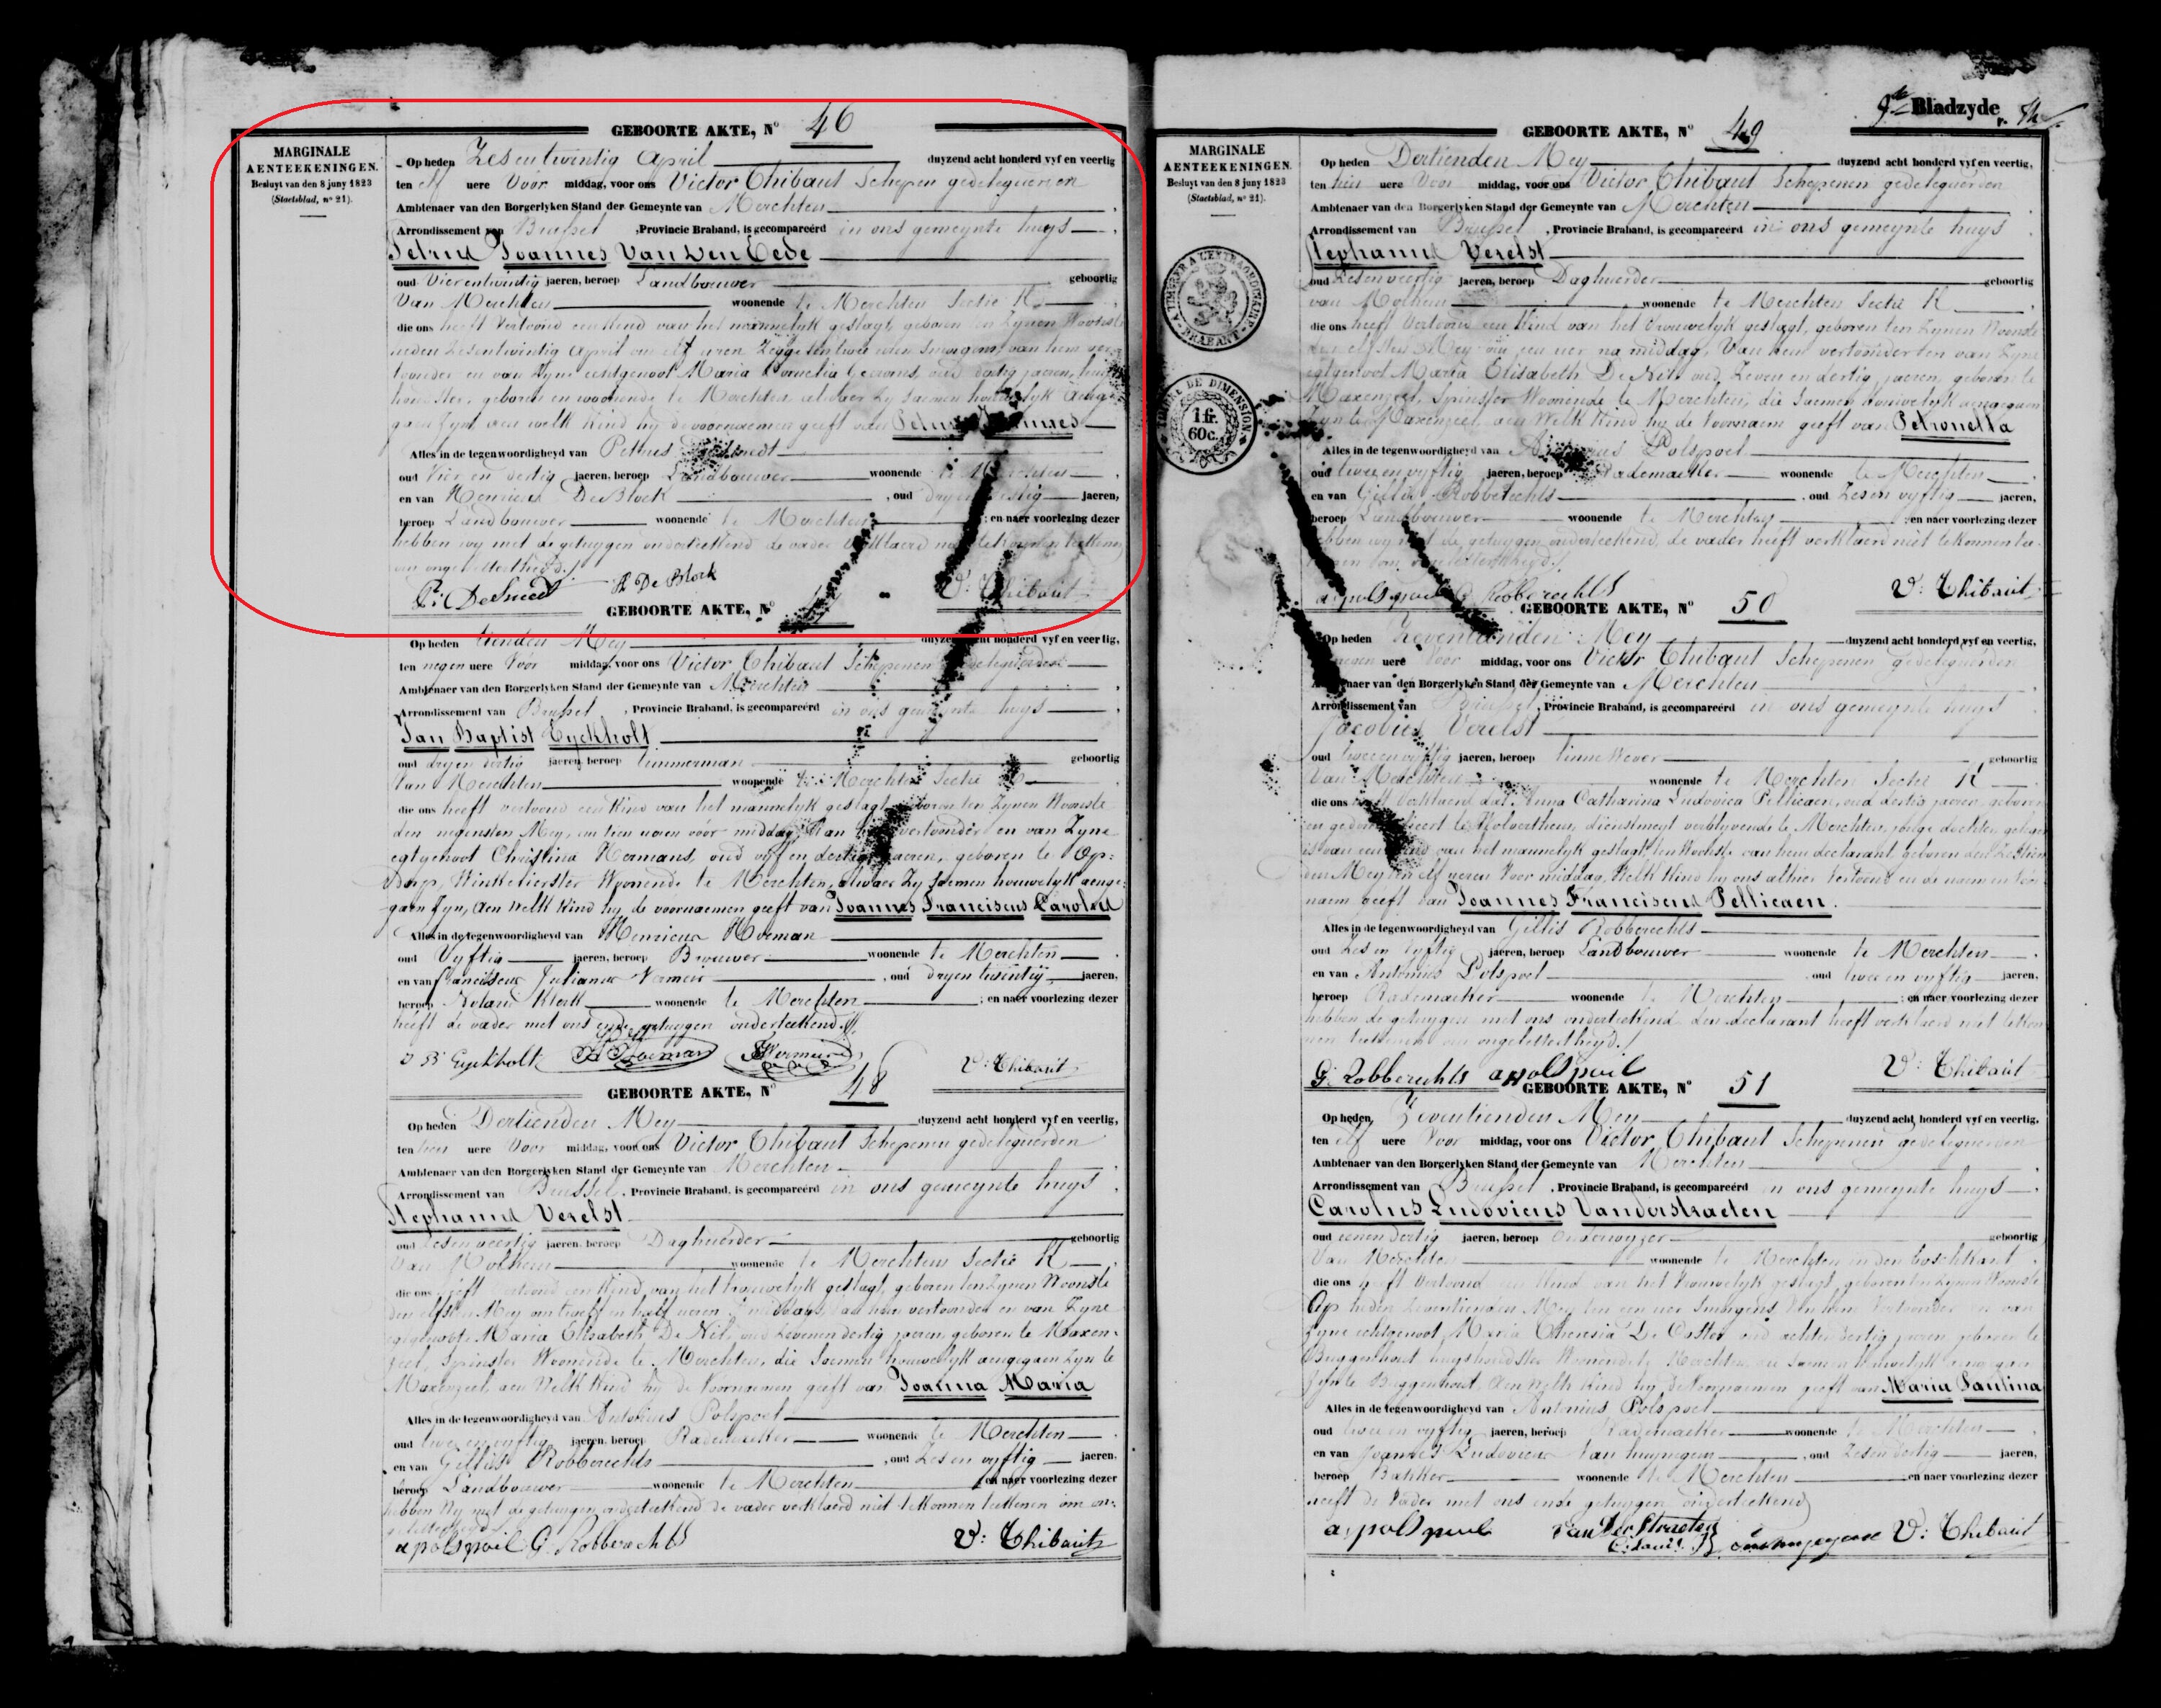 GEBOORTE AKTE, N° 46
MARGINALE
AENTEEKENINGEN.
Besluyt van den 8 juny 1823
(Staetsblad, n° 21).
Op heden Zesentwintig April duyzend acht honderd vyf en veertig
ten elf uere Vóor middag, voor ons Victor Thibaut Schepen gedeleguerden
Ambtenaer van den Borgerlyken Stand der Gemeynte van Merchten
Arrondissement van Brussel, Provincie Braband, is gecompareérd in ons gemeynte huys
Petrus Joannes Van den Eede
oud Vierentwintig jaeren, beroep Landbouwer geboortig
Van Merchten woonende te Merchten Sectie K
die ons heeft Vertoond een Kind van het mannelyk geslagt, geboren ten Zynen Woonste
heden Zesentwintig April om elf uren smorgens, van hem ver-
toonder en van Zyne echtgenoot Maria Cornelia oud dertig jaeren,
geboren en woonende te Merchten alwaer Zy saemen houwelyk aenge-
gaen Zyn, aen welk Kind hy de voornaemen geeft van Petrus Joannes
Alles in de tegenwoordigheyd van Petrus Desmedt
oud Vier en dertig jaeren, beroep Landbouwer woonende te Merchten
en van Henricus De Block, oud jaeren,
beroep Landbouwer woonende te Merchten; en naer voorlezing dezer
hebben wy met de getuygen onderteekend de vader verklaerd niet te konnen teekenen
om ongeletterdheyd./
P: DeSmedt H De Block V: Thibaut
GEBOORTE AKTE, N° 47
Op heden tienden Mey duyzend acht honderd vyf en veertig,
ten negen uere Vóor middag, voor ons Victor Thibaut Schepenen gedeleguerden
Ambtenaer van den Borgerlyken Stand der Gemeynte van Merchten
Arrondissement van Brussel, Provincie Braband, is gecompareérd in ons gemeynte huys
Jan Baptist Eyckholt
oud dry en dertig jaeren, beroep timmerman geboortig
Van Merchten woonende te Merchten Sectie
die ons heeft vertoond een Kind van het mannelyk geslagt, geboren ten Zynen Woonste
den negensten Mey, om tien uren vóór middag, Van hem vertoonder en van Zyne
egtgenoot Christina Hermans, oud vyf en dertig jaeren, geboren te Op-
dorp, Winkelierster Woonende te Merchten, alwaer Zy saemen houwelyk aenge-
gaen Zyn, Aen welk Kind hy de voornaemen geeft van Joannes Franciscus Carolus
Alles in de tegenwoordigheyd van Henricus Moeman
oud Vyftig jaeren, beroep Brouwer woonende te Merchten
en van Franciscus Julianus Vermeir, oud dry en twintig jaeren,
beroep Notaris Klerk woonende te Merchten; en naer voorlezing dezer
heeft de vader met ons ende getuygen onderteekend.
J B Eyckholt V: Thibaut
GEBOORTE AKTE, N° 48
Op heden Dertienden Mey duyzend acht honderd vyf en veertig,
ten tien uere Voor middag, voor ons Victor Thibaut Schepenen gedeleguerden
Ambtenaer van den Borgerlyken Stand der Gemeynte van Merchten
Arrondissement van Brussel, Provincie Braband, is gecompareérd in ons gemeynte huys
Stephanus Verelst
oud Zesenveertig jaeren, beroep Daghuerder geboortig
Van Molhem woonende te Merchten Sectie K
die ons heeft vertoond een Kind van het Vrouwelyk geslagt, geboren ten Zynen Woonste
den elfsten Mey om twelf en half ueren middag, Van hem vertoonder en van Zyne
egtgenoot Maria Elisabeth De Nil, oud Zeven en dertig jaeren, geboren te Maxen-
zeel, Spinster Woonende te Merchten, die saemen houwelyk aengegaen Zyn te
Maxenzeel, aen Welk Kind hy de Voornaemen geeft van Joanna Maria
Alles in de tegenwoordigheyd van Antonius Polspoel
oud twee en vyftig jaeren, beroep Rademaeker woonende te Merchten
en van Gillis Robberechts, oud Zes en vyftig jaeren,
beroep Landbouwer woonende te Merchten en naer voorlezing dezer
hebben Wy met de getuygen onderteekend de vader verklaerd niet te konnen teekenen om on-
geletterdheyd
a polspoil G. Robberechts V: Thibaut
9de Bladzyde
GEBOORTE AKTE, N° 49
MARGINALE
AENTEEKENINGEN.
Besluyt van den 8 juny 1823
(Staetsblad, n° 21).
A TIMBRER A L'EXTRAORDINAIRE
BRABANT
TIMBRE DE DIMENSION
1 fr.
60 c.
Op heden Dertienden Mey duyzend acht honderd vyf en veertig,
ten tien uere Voor middag, voor ons Victor Thibaut Schepenen gedeleguerden
Ambtenaer van den Borgerlyken Stand der Gemeynte van Merchten
Arrondissement van Brussel, Provincie Braband, is gecompareérd in ons gemeynte huys
Stephanus Verelst
oud Zesenveertig jaeren, beroep Daghuerder geboortig
van Molhem woonende te Merchten Sectie K
die ons heeft Vertoond een Kind van het Vrouwelyk geslagt, geboren ten Zynen Woonste
den elfsten Mey om een uer na middag, Van hem vertoonder en van Zyne
egtgenoot Maria Elisabeth De Nil, oud Zeven en dertig jaeren, geboren te
Maxenzeel, Spinster Woonende te Merchten, die saemen houwelyk aengegaen
Zyn te Maxenzeel, aen Welk Kind hy de Voornaem geeft van Petronella
Alles in de tegenwoordigheyd van Antonius Polspoel
oud twee en vyftig jaeren, beroep Rademaeker woonende te Merchten
en van Gillis Robberechts, oud Zes en vyftig jaeren,
beroep Landbouwer woonende te Merchten; en naer voorlezing dezer
hebben wy met de getuygen onderteekend, de vader heeft verklaerd niet te konnen tee-
kenen om ongeletterdheyd./
a polspoil G Robberechts V: Thibaut
GEBOORTE AKTE, N° 50
Op heden Zeventienden Mey duyzend acht honderd vyf en veertig,
ten negen uere Vóor middag, voor ons Victor Thibaut Schepenen gedeleguerden
Ambtenaer van den Borgerlyken Stand der Gemeynte van Merchten
Arrondissement van Brussel, Provincie Braband, is gecompareérd in ons gemeynte huys
Jacobus Verelst
oud twee en vyftig jaeren, beroep Linne Wever geboortig
Van Merchten woonende te Merchten Sectie K
die ons heeft Verklaerd dat Anna Catharina Ludovica Pellicaen, oud dertig jaeren, geboren
en gedomicilieert te Wolverthem, dienstmeyt verblyvende te Merchten, jonge dochter, gelegen
is van een Kind van het mannelyk geslagt, ten Woonste van hem declarant, geboren den Zestien
den Mey ten elf ueren Voor middag, Welk Kind hy ons alhier Vertoond en de naem en Voor-
naem geeft van Joannes Franciscus Pellicaen.
Alles in de tegenwoordigheyd van Gillis Robberechts
oud Zes en vyftig jaeren, beroep Landbouwer woonende te Merchten
en van Antonius Polspoel, oud twee en vyftig jaeren,
beroep Rademaeker woonende te Merchten; en naer voorlezing dezer
hebben de getuygen met ons onderteekend den declarant heeft verklaerd niet te kon-
nen teekenen om ongeletterdheyd./
G. Robberechts a polspoil V: Thibaut
GEBOORTE AKTE, N° 51
Op heden, Zeventienden Mey duyzend acht honderd vyf en veertig,
ten elf uere Voor middag, voor ons Victor Thibaut Schepenen gedeleguerden
Ambtenaer van den Borgerlyken Stand der Gemeynte van Merchten
Arrondissement van Brussel, Provincie Braband, is gecompareérd in ons gemeynte huys
Carolus Ludovicus Vanderstraeten
oud eenen dertig jaeren, beroep Onderwyzer geboortig
Van Merchten woonende te Merchten in den boschkant
die ons heeft Vertoond een Kind van het Vrouwelyk geslagt, geboren ten Zynen Woonste
Op heden Zeventienden Mey ten een uer Smorgens, Van hem Vertoonder en van
Zyne echtgenoot Maria Theresia De Coster oud acht en dertig jaeren, geboren te
Buggenhout huyshoudster Woonende te Merchten, die saemen houwelyk aengegaen
Zyn te Buggenhout, Aen Welk Kind hy de Voornaemen geeft van Maria Paulina
Alles in de tegenwoordigheyd van Antonius Polspoel
oud twee en vyftig jaeren, beroep Rademaeker woonende te Merchten
en van Joannes Ludovicus Van huynegem, oud Zesendertig jaeren,
beroep Bakker woonende te Merchten en naer voorlezing dezer
heeft de Vader met ons ende getuygen onderteekend
a polspoil Van Der Straeten V: Thibaut